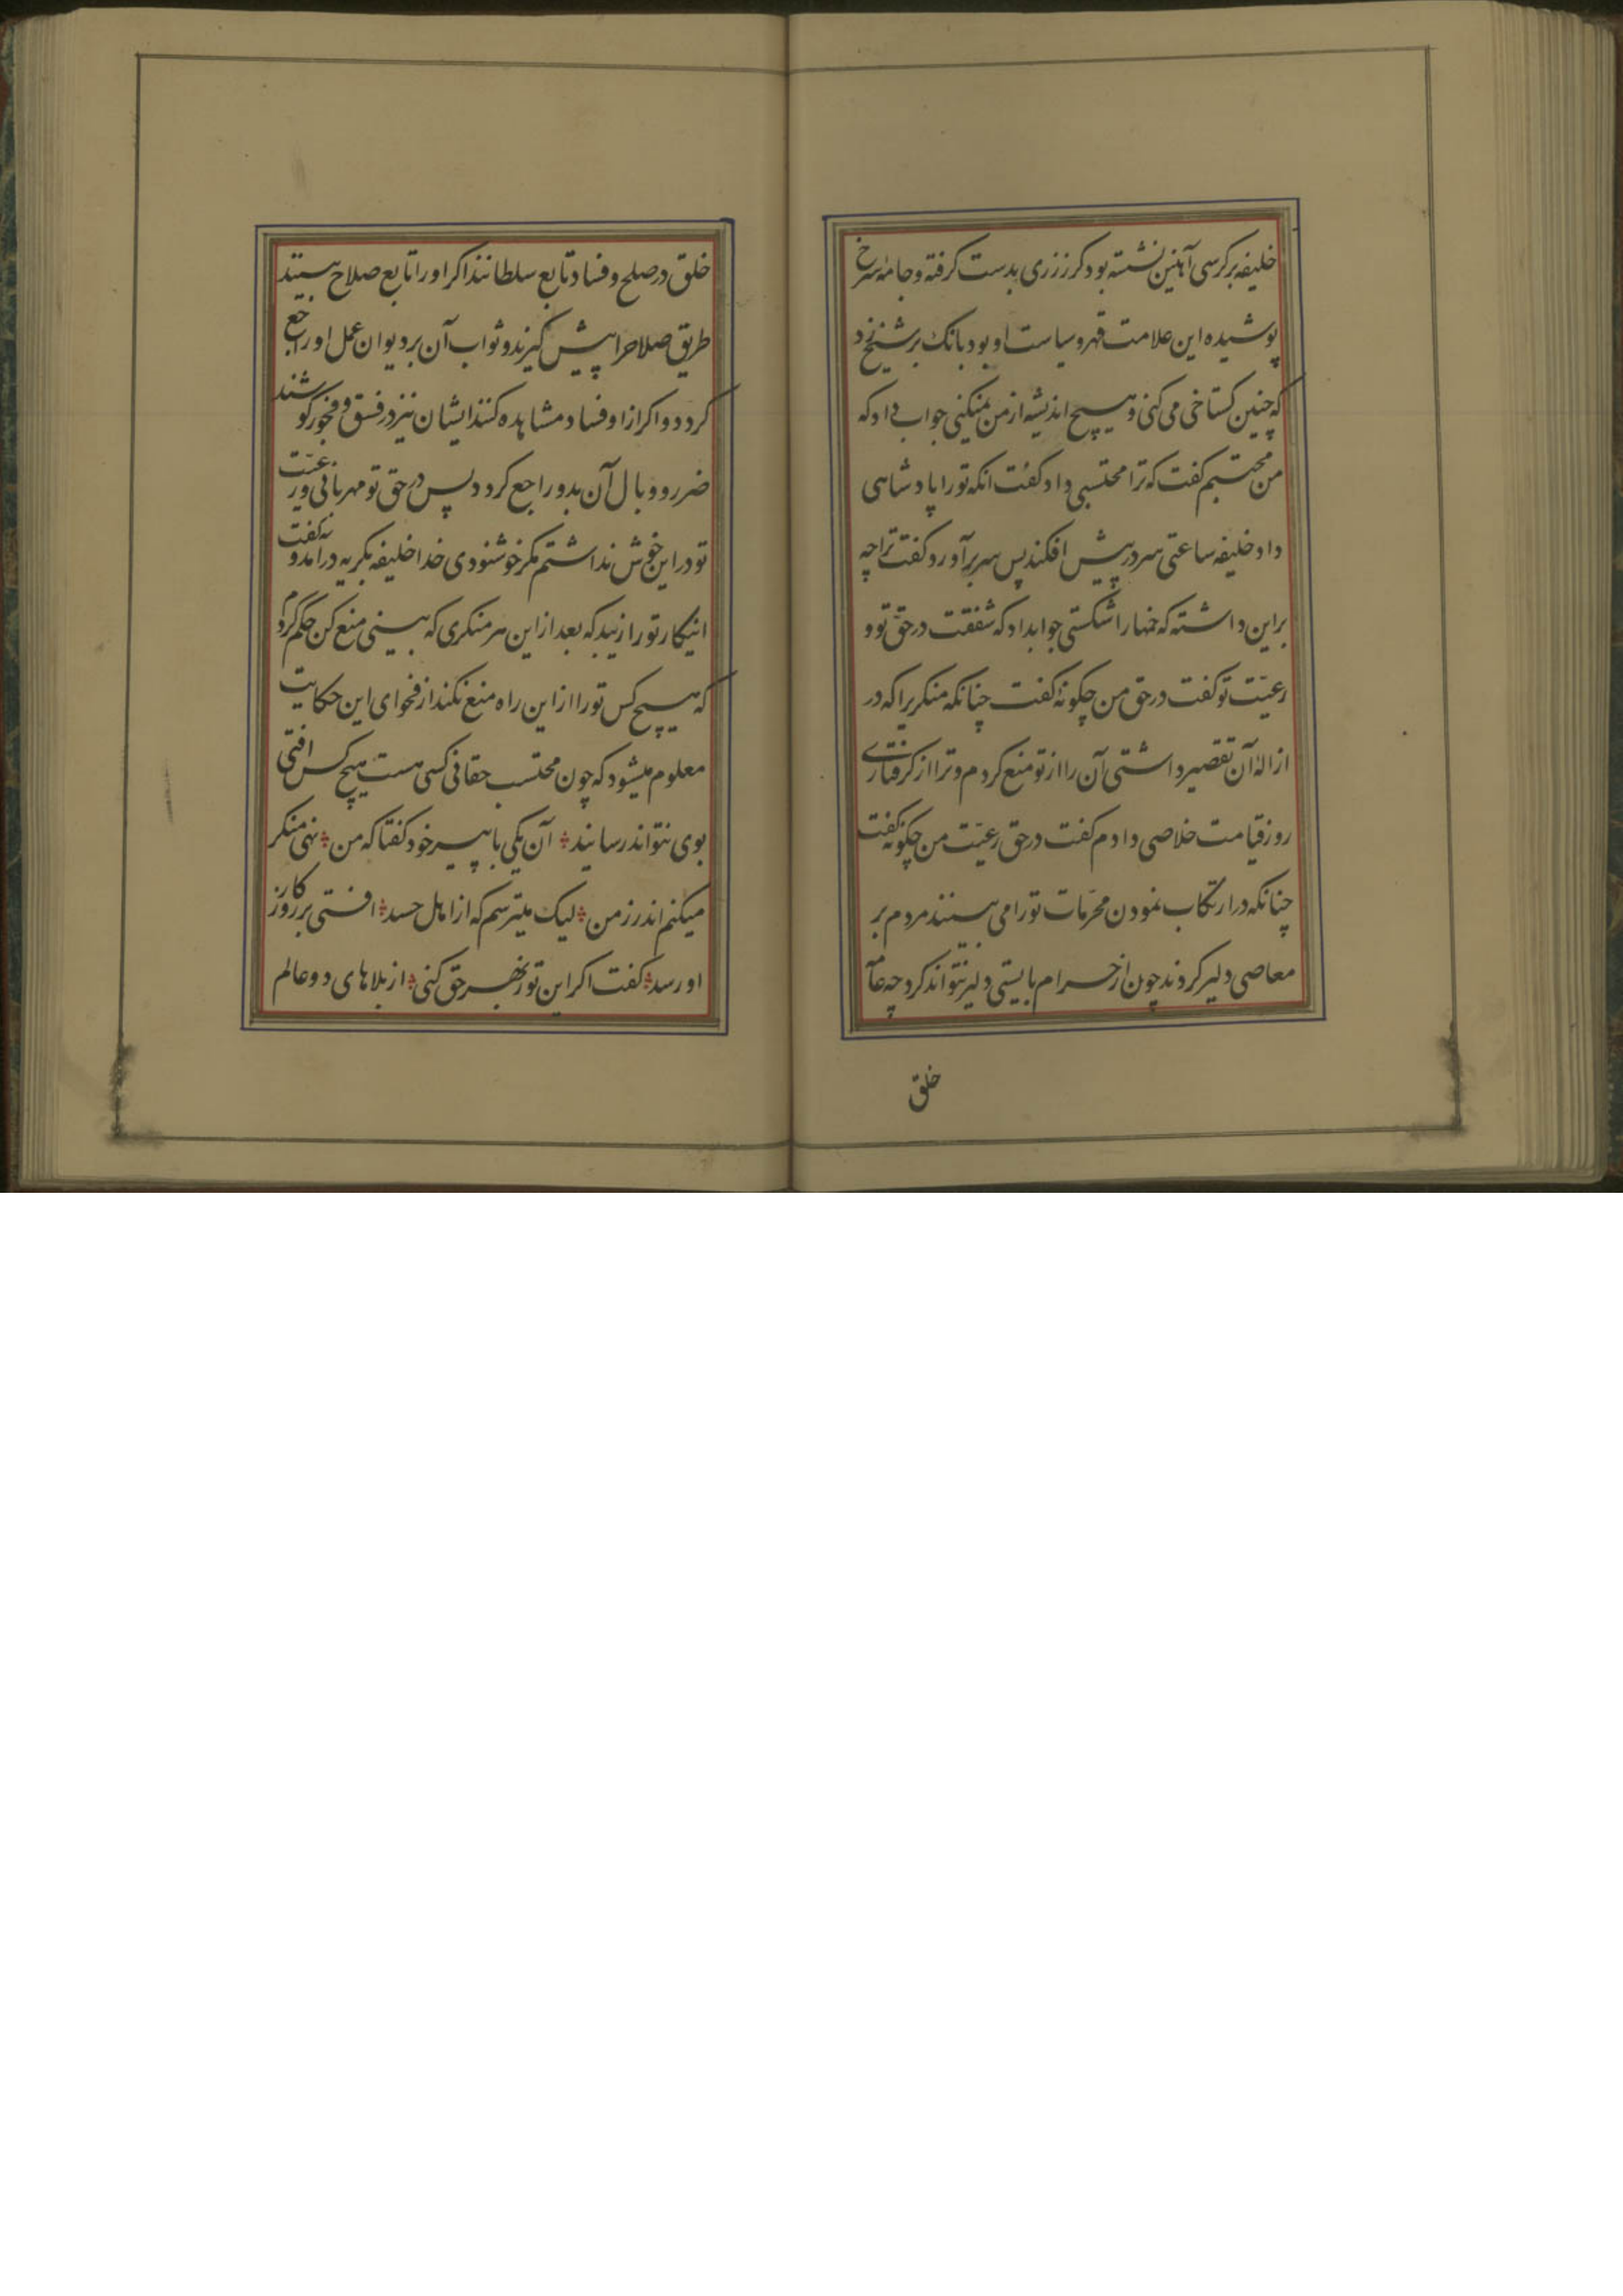 خلیفه بر کرسی آهنین نشسته بود کرز زری بدست کرفته و جامه سرخ
پوشیده این علامت قهر و سیاست او بود بانک بر شیخ زد
که چنین کستاخی می کنی و هیچ اندیشه از من نمیکنی جواب داد که
من محتسبم کفت که ترا محتسبی داد کفت انکه تو را پادشاهی
داد خلیفه ساعتی سر در پیش افکند پس سر برآورد و کفت ترا چه
براین داشته که خمها را شکستی جوابداد که شفقت در حق تو و
رعیت تو کفت در حق من چکونه کفت چنانکه منکریرا که در
ازالهٔ آن تقصیر داشتی آن را از تو منع کردم و ترا از کرفتاری
روز قیامت خلاصی دادم کفت در حق رعیت من چکونه کفت
چنانکه در ارتکاب نمودن محرمات تو را می بینند مردم بر
معاصی دلیر کردند چون از حرام بایستی دلیر نتواند کرد چه عامهٔ
خلق
خلق در صلح و فساد تابع سلطانند اکر او را تابع صلاح بینند
طریق صلاحرا پیش کیرند و ثواب آن بر دیوان عمل او راجع
کردد و اکر از او فساد مشاهده کنند ایشان نیز در فسق و فجور کوشند
ضرر و وبال آن بدو راجع کردد پس در حق تو مهربانی و رعیت
تو در این خوش نداشتم مکر خوشنودی خدا خلیفه بکریه درامد و کفت
اینکار تو را زیبد که بعد از این هر منکری که بینی منع کن حکم کردم
که هیچ کس تو را از این راه منع نکند از فحوای این حکایت
معلوم میشود که چون محتسب حقانی کسی هست هیچ کس افتی
بوی نتواند رسانید ؞ آن یکی با پیر خود کفتا که من ؞ نهی منکر
میکنم اندر زمن ؞ لیک میترسم که از اهل حسد ؞ افتی بر روز کار
او رسد ؞ کفت اکر این تو ز بهر حق کنی ؞ از بلاهای دو عالم